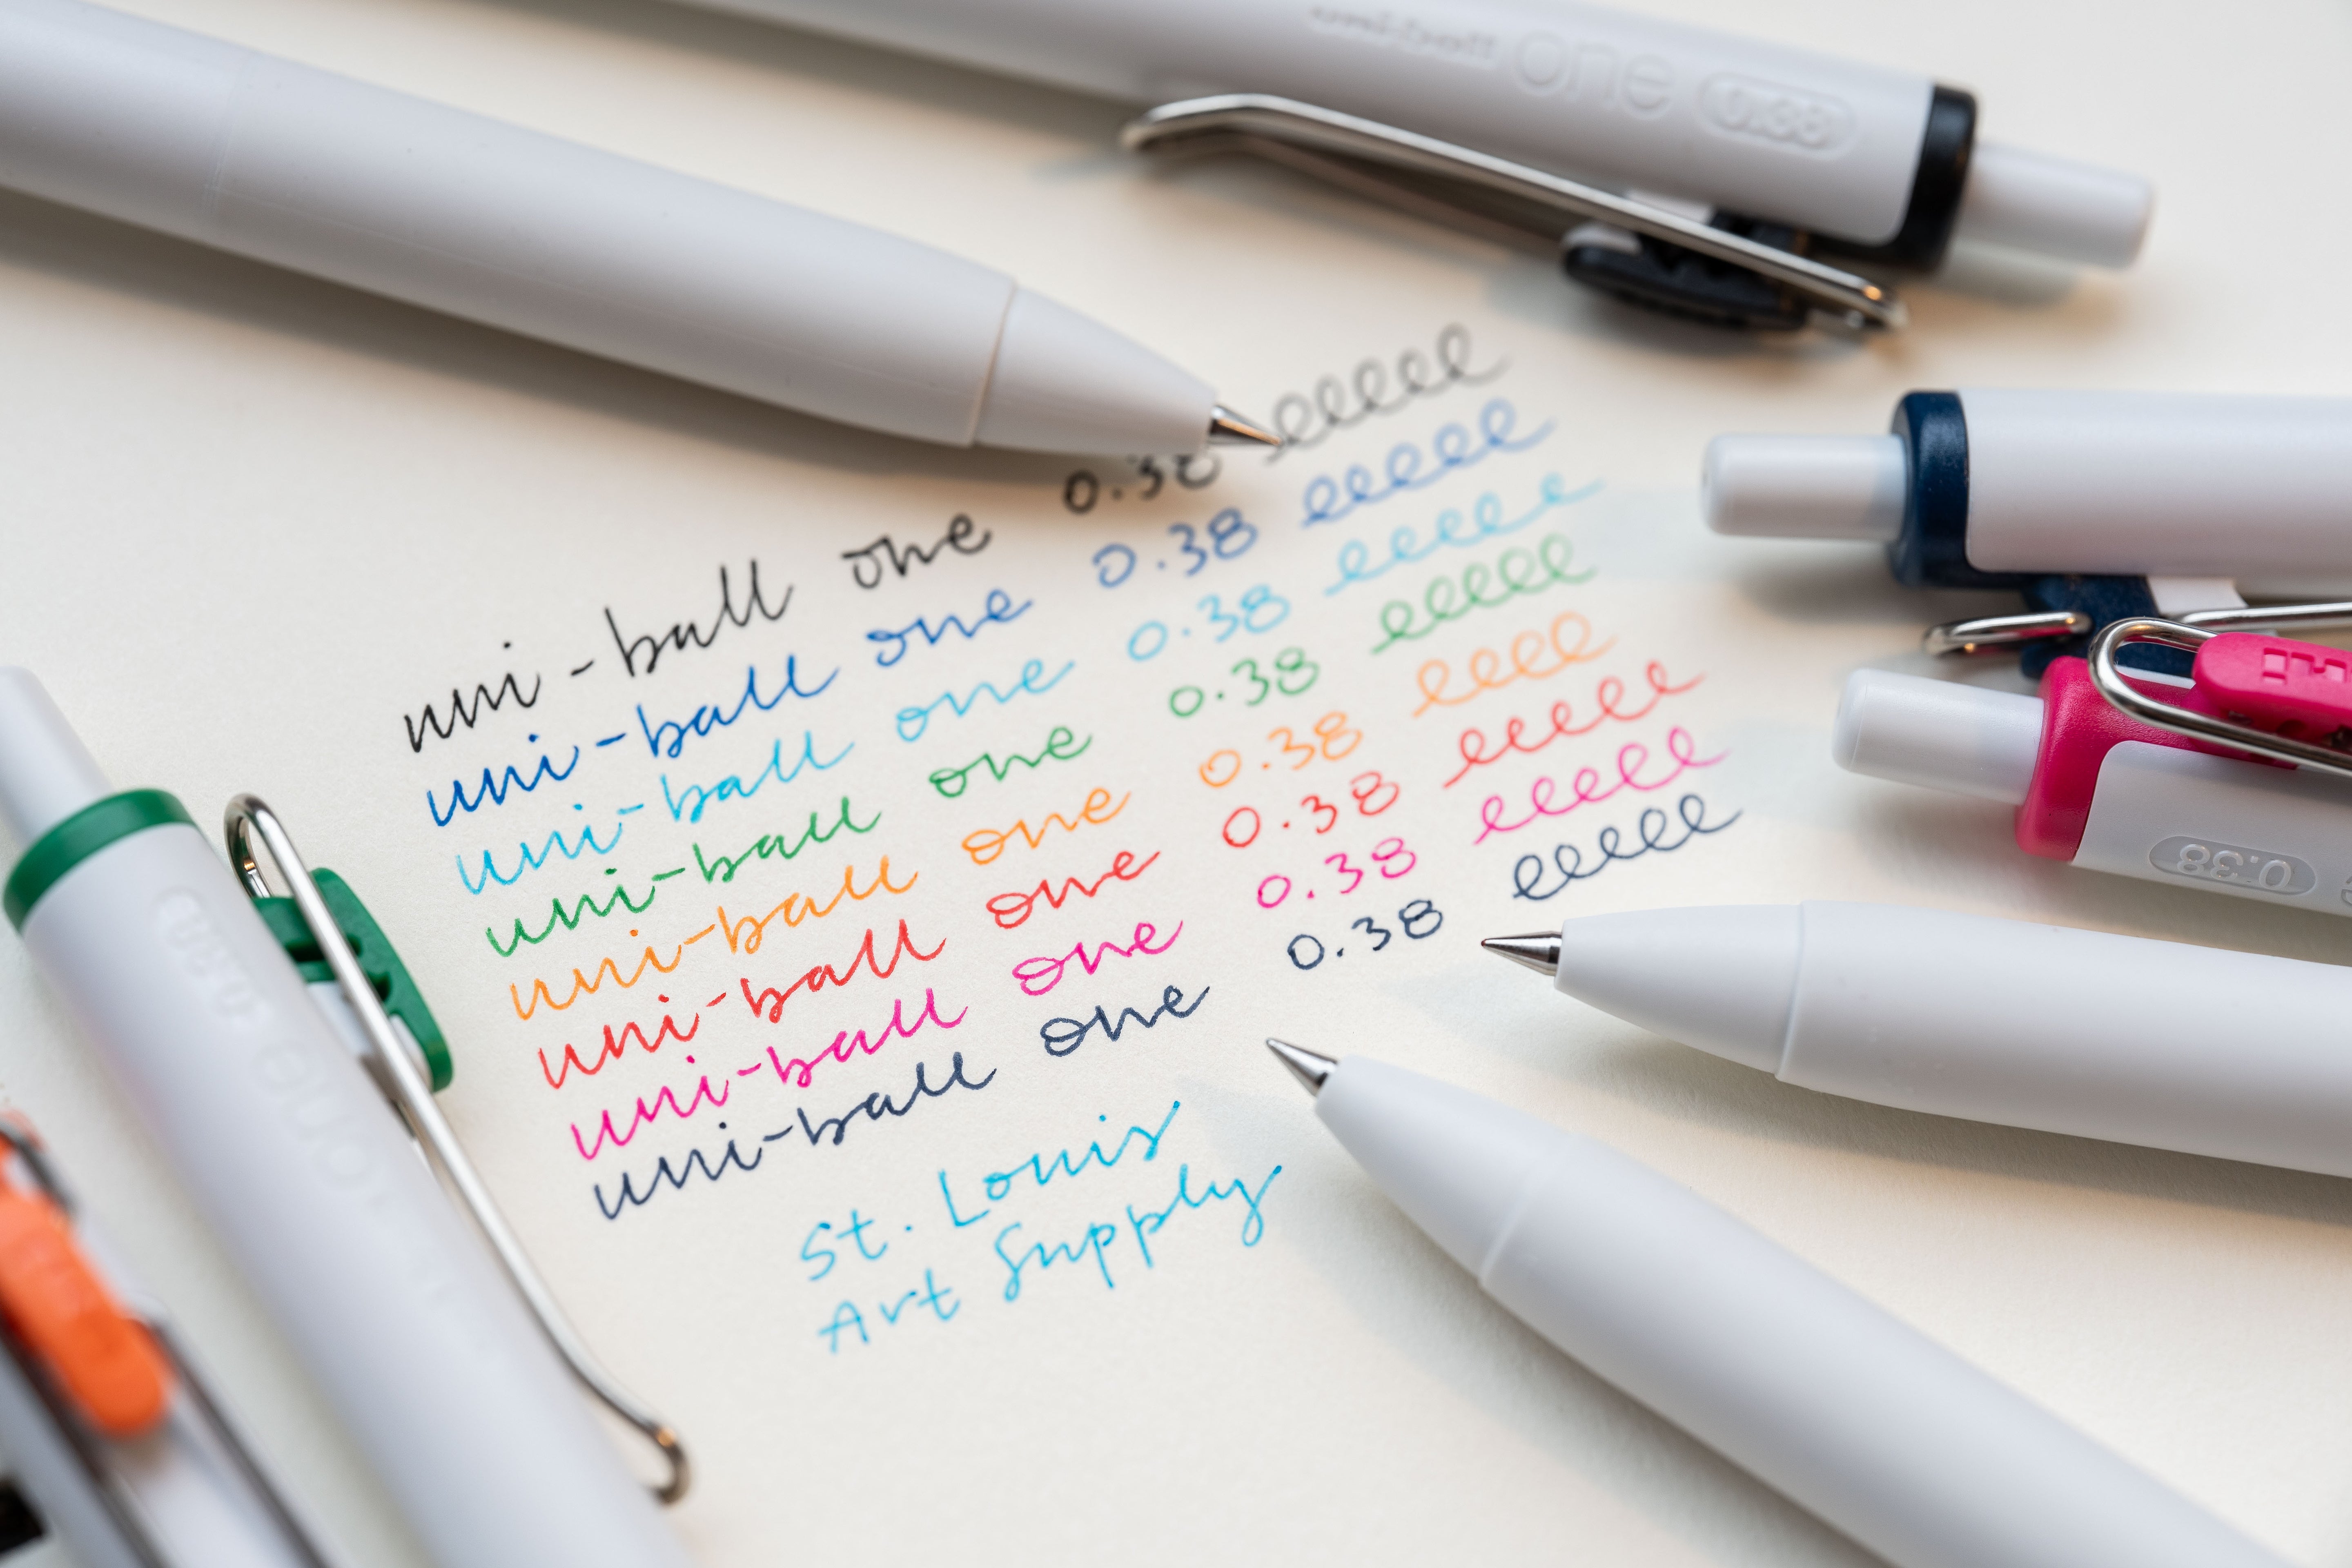 uni-ball one 0.38
uni-ball one 0.38
uni-ball one 0.38
uni-ball one 0.38
uni-ball one 0.38
uni-ball one 0.38
uni-ball one 0.38
uni-ball one 0.38
uni-ball one 0.38
St. Louis
Art Supply
0.38
one 0.38